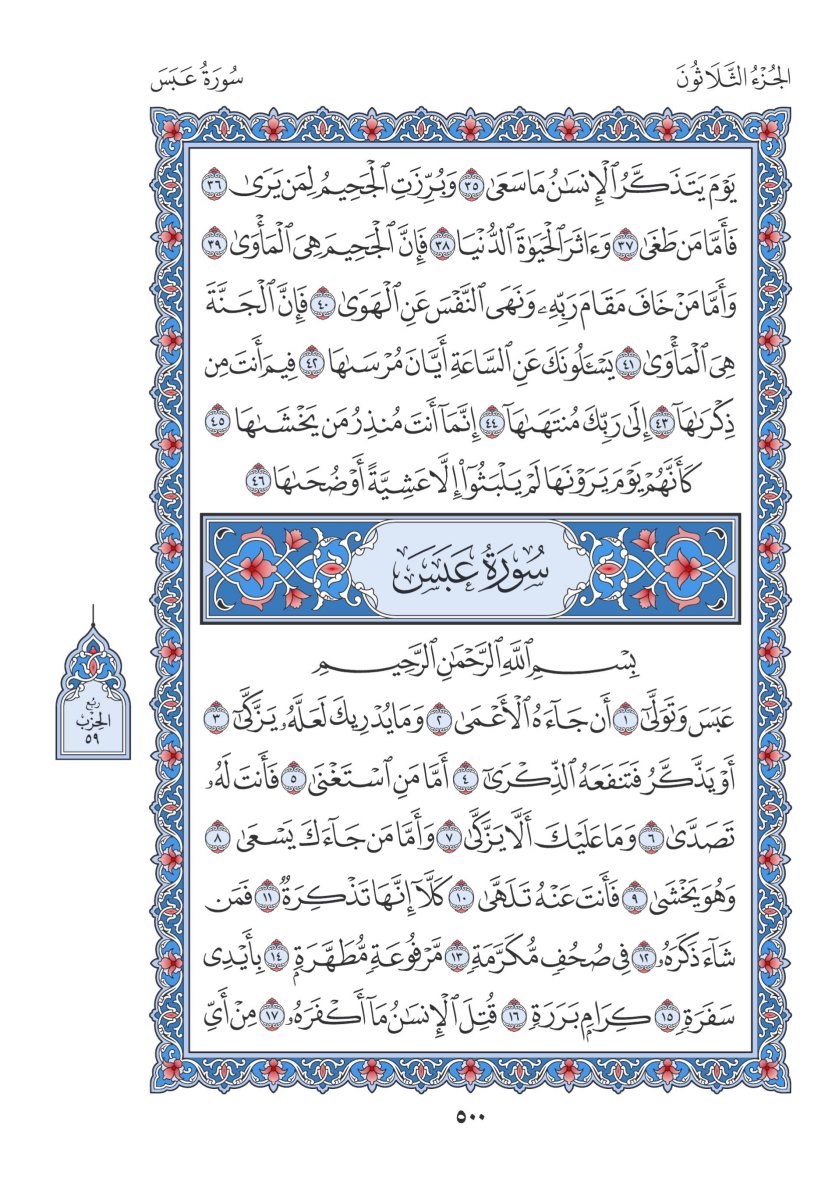 الجُزْءُ الثَّلَاثُونَ
سُورَةُ عَبَسَ
يَوْمَ يَتَذَكَّرُ ٱلْإِنسَٰنُ مَا سَعَىٰ ٣٥ وَبُرِّزَتِ ٱلْجَحِيمُ لِمَن يَرَىٰ ٣٦
فَأَمَّا مَن طَغَىٰ ٣٧ وَءَاثَرَ ٱلْحَيَوٰةَ ٱلدُّنْيَا ٣٨ فَإِنَّ ٱلْجَحِيمَ هِىَ ٱلْمَأْوَىٰ ٣٩
وَأَمَّا مَنْ خَافَ مَقَامَ رَبِّهِۦ وَنَهَى ٱلنَّفْسَ عَنِ ٱلْهَوَىٰ ٤٠ فَإِنَّ ٱلْجَنَّةَ
هِىَ ٱلْمَأْوَىٰ ٤١ يَسْـَٔلُونَكَ عَنِ ٱلسَّاعَةِ أَيَّانَ مُرْسَىٰهَا ٤٢ فِيمَ أَنتَ مِن
ذِكْرَىٰهَآ ٤٣ إِلَىٰ رَبِّكَ مُنتَهَىٰهَآ ٤٤ إِنَّمَآ أَنتَ مُنذِرُ مَن يَخْشَىٰهَا ٤٥
كَأَنَّهُمْ يَوْمَ يَرَوْنَهَا لَمْ يَلْبَثُوٓا۟ إِلَّا عَشِيَّةً أَوْ ضُحَىٰهَا ٤٦
سُورَةُ عَبَسَ
بِسْمِ ٱللَّهِ ٱلرَّحْمَٰنِ ٱلرَّحِيمِ
عَبَسَ وَتَوَلَّىٰٓ ١ أَن جَآءَهُ ٱلْأَعْمَىٰ ٢ وَمَا يُدْرِيكَ لَعَلَّهُۥ يَزَّكَّىٰٓ ٣
أَوْ يَذَّكَّرُ فَتَنفَعَهُ ٱلذِّكْرَىٰٓ ٤ أَمَّا مَنِ ٱسْتَغْنَىٰ ٥ فَأَنتَ لَهُۥ
تَصَدَّىٰ ٦ وَمَا عَلَيْكَ أَلَّا يَزَّكَّىٰ ٧ وَأَمَّا مَن جَآءَكَ يَسْعَىٰ ٨
وَهُوَ يَخْشَىٰ ٩ فَأَنتَ عَنْهُ تَلَهَّىٰ ١٠ كَلَّآ إِنَّهَا تَذْكِرَةٌ ١١ فَمَن
شَآءَ ذَكَرَهُۥ ١٢ فِى صُحُفٍ مُّكَرَّمَةٍ ١٣ مَّرْفُوعَةٍ مُّطَهَّرَةٍۭ ١٤ بِأَيْدِى
سَفَرَةٍ ١٥ كِرَامٍۭ بَرَرَةٍ ١٦ قُتِلَ ٱلْإِنسَٰنُ مَآ أَكْفَرَهُۥ ١٧ مِنْ أَىِّ
رُبْع
الحِزْب
٥٩
٥٠٠